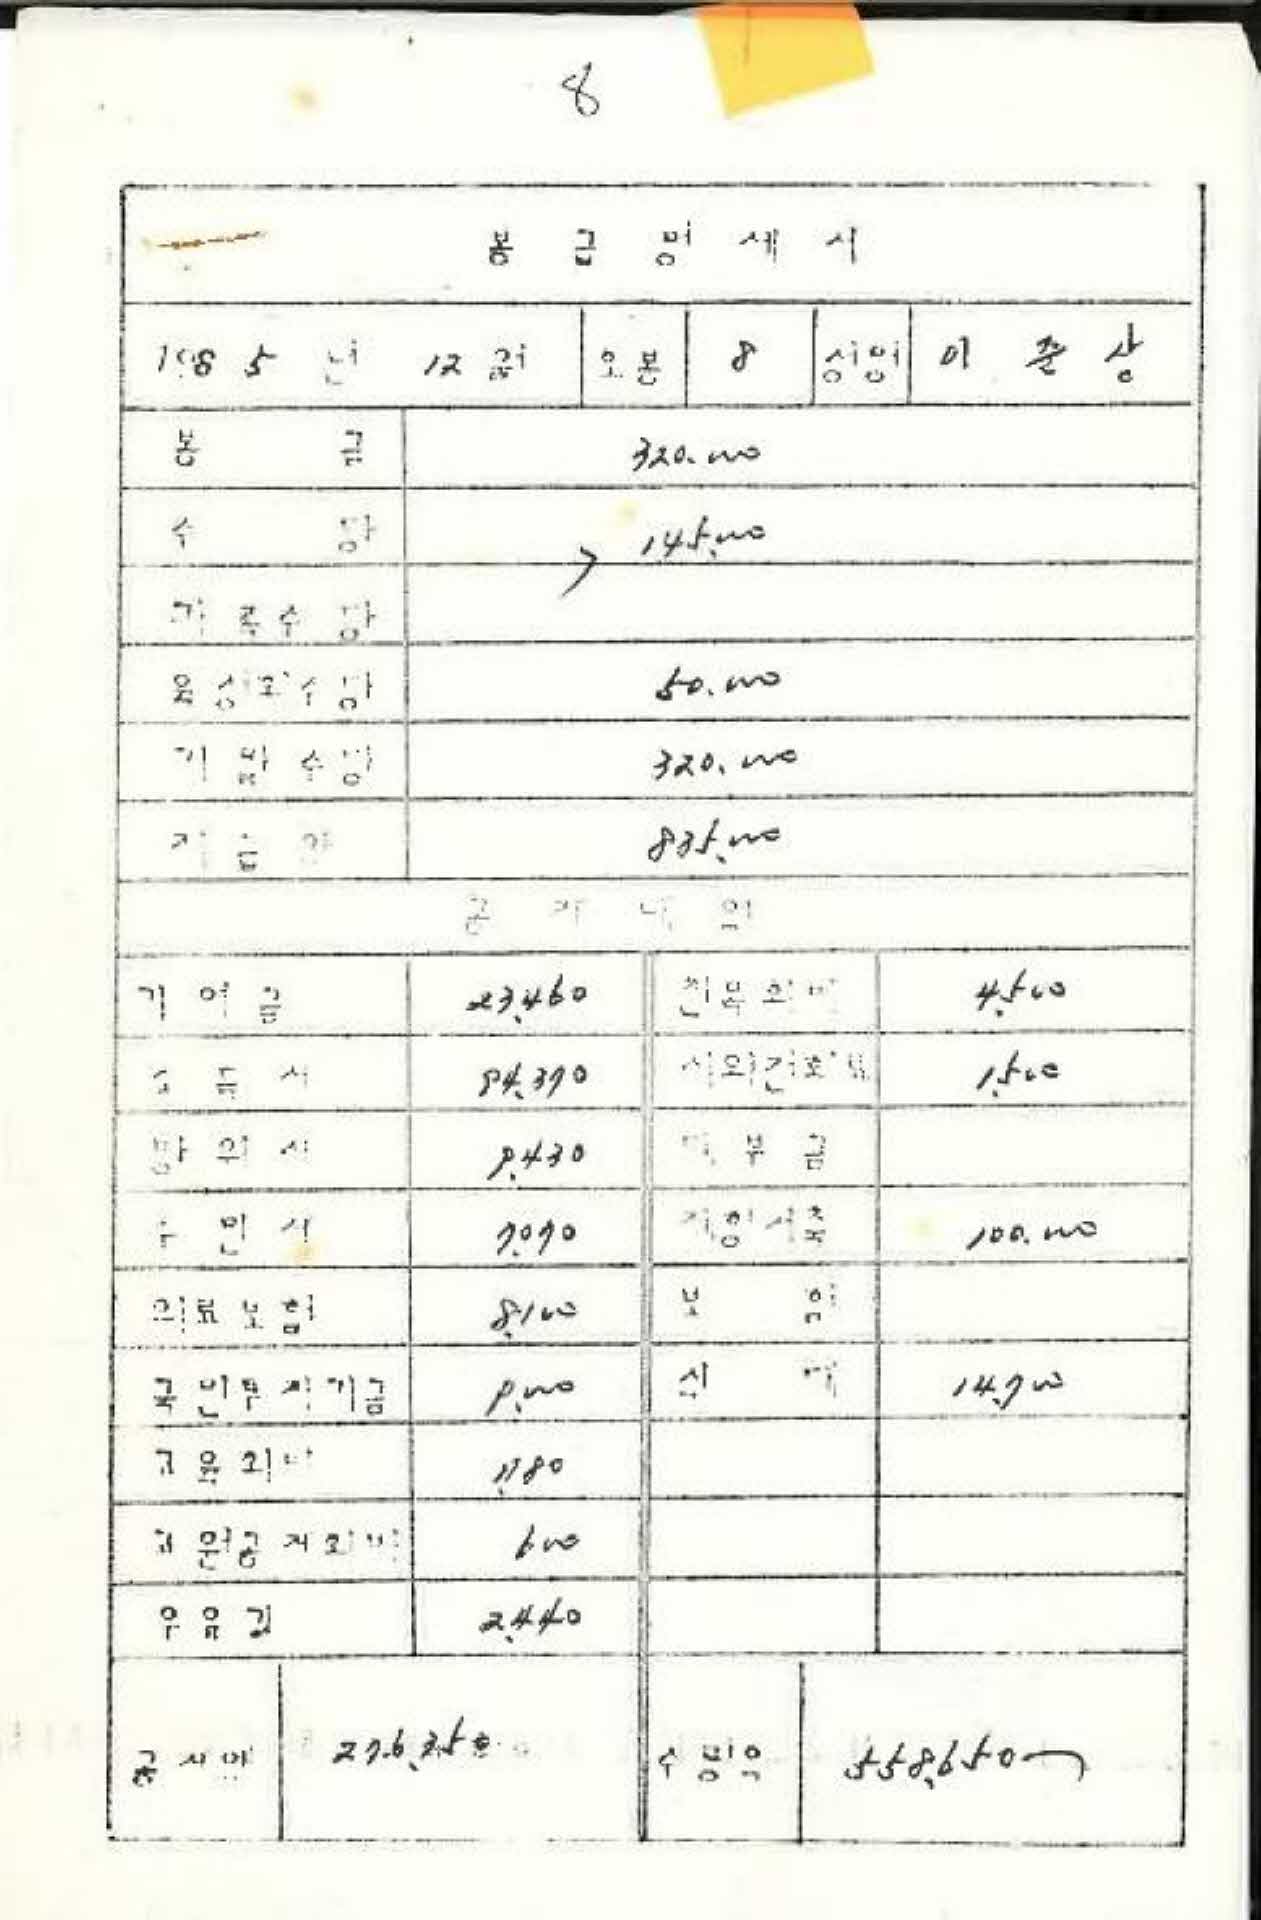 8
봉 급 명 세 서
1985 년 12월 호봉 8 성명 이 춘 상
봉 급 320.000
수 당 145.000
가 족 수 당
육 성 회 수 당 50.000
기 말 수 당 320.000
지 급 액 835.000
공 제 내 역
기 여 금 23,460 친 목 회 비 4,500
소 득 세 94,370 시외전화료 1,500
방 위 세 9,430
주 민 세 7,070 저 축 100.000
의 료 보 험 8,100 보 험
국 민 투 자 기 금 9,000 식 대 14,700
교 육 회 비 1,180
교 원 공 제 회 비 600
우 유 값 2,440
공 제 액 276,350 수 령 액 558,650